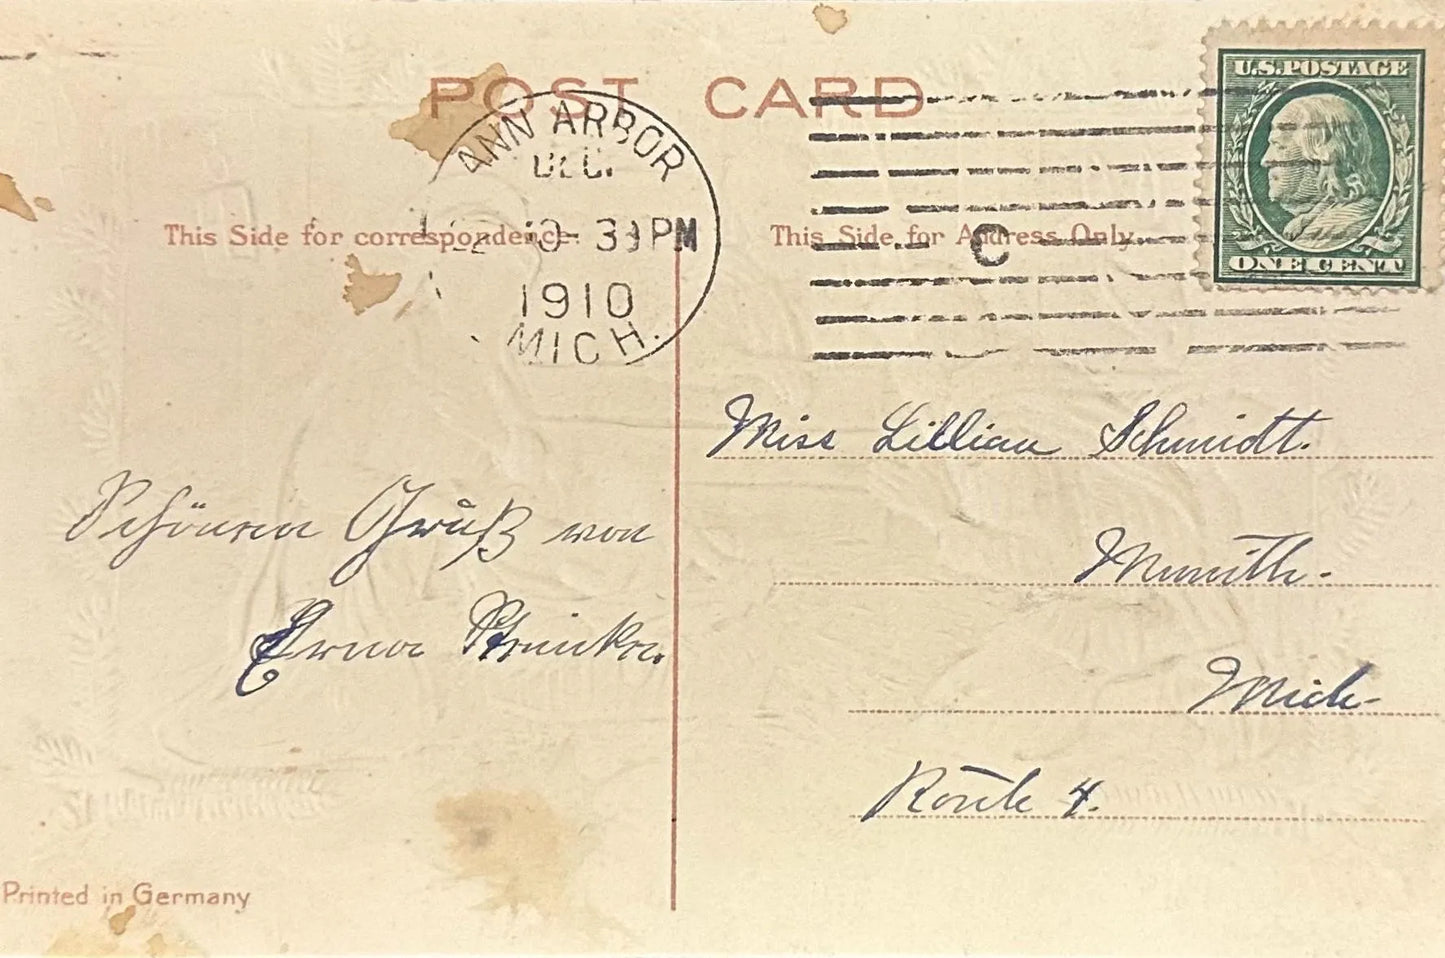 POST CARD
U.S. POSTAGE
ONE CENT
ANN ARBOR
DEC.
PM
1910
MICH.
C
This Side for correspondence.
This Side for Address Only.
Schönen Gruß von
Erna
Miss Lillian Schmidt.
Munith.
Mich.
Route 4.
Printed in Germany